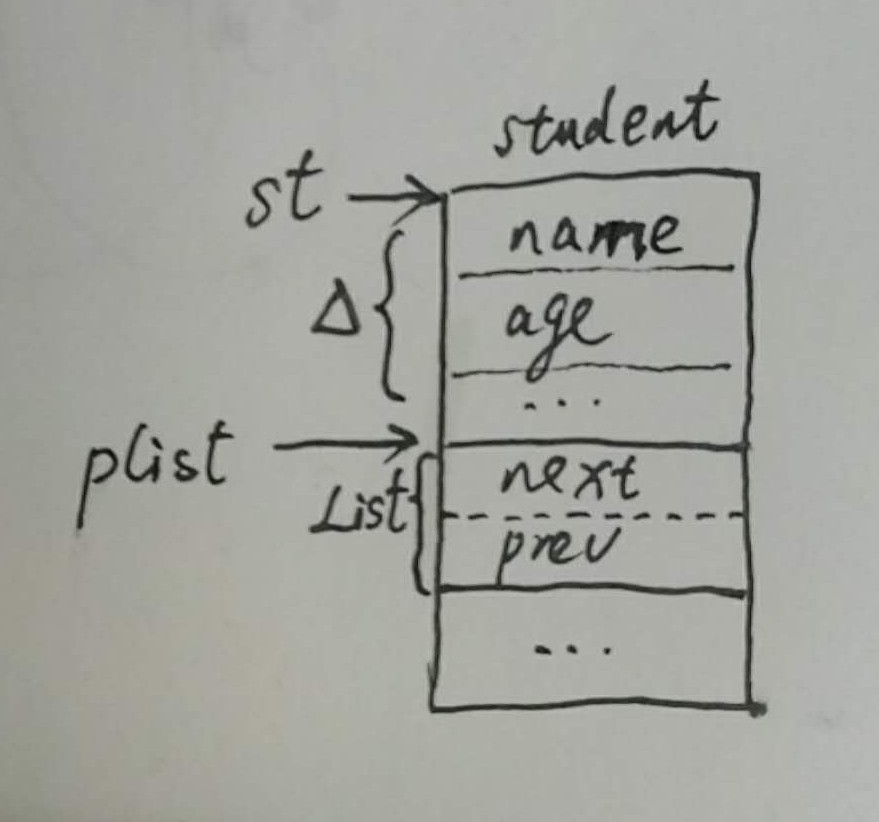 student
st
name
Δ
age
...
plist
next
List
prev
...